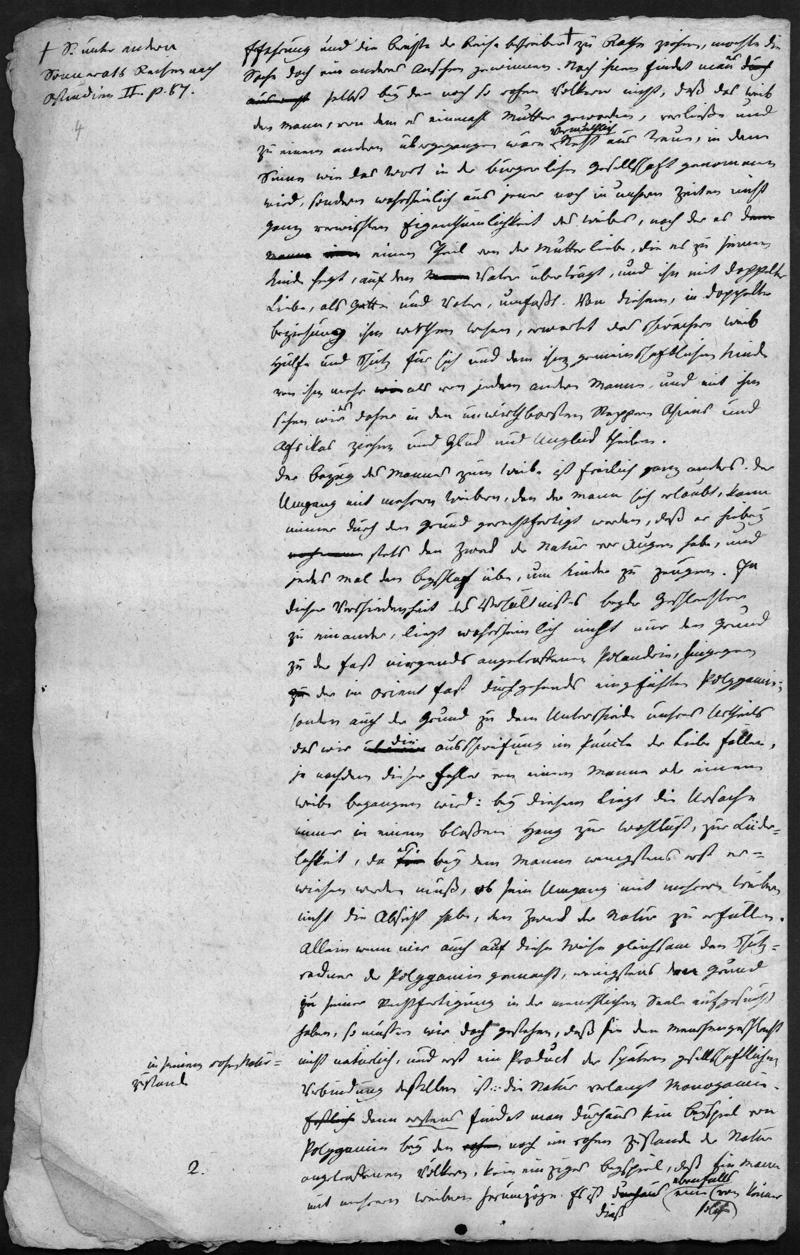 † S. unter andern
Sonnerats Reisen nach
Ostindien II. p. 57.
4
Erfahrung und die Berichte der Reise beschreiber † zu Rathe ziehen, möchte die
Sache doch ein anderes Ansehen gewinnen. Nach ihnen findet man's
selbst bey den noch so rohen Völkern nicht, daß das Weib
den Mann, von dem es einmahl Mutter geworden, verließe und
zu einem andern übergegangen wäre vermuthlich nicht aus Treue, in dem
Sinne wie das Wort in der bürgerlichen Gesellschaft genommen
wird, sondern wahrscheinlich aus jener noch in unsern Zeiten nicht
ganz verwischten Eigenthümlichkeit des Weibes, nach der es
einen Theil von der Mutterliebe, die es zu seinem
Kinde hegt, auf den Vater überträgt, und ihn mit doppelter
Liebe, als Gatte und Vater, umfaßt. Von diesem, in doppelter
Beziehung ihm werthen Wesen, erwartet das schwächere Weib
Hülfe und Schutz für sich und dem ihm gemeinschaftlichen Kinde
von ihm mehr als von jedem andern Manne, und mit ihm
sehen wir es daher in den unwirthbarsten Steppen Asiens und
Afrikas ziehen und Glück und Unglück theilen.
Der Bezug des Mannes zum Weibe ist freilich ganz anders. Der
Umgang mit mehrern Weibern, den der Mann sich erlaubt, kann
immer durch den Grund gerechtfertigt werden, daß er hiebey
stets den Zweck der Natur vor Augen habe, und
jedes mal den Beyschlaf übe, um Kinder zu zeugen. In
dieser Verschiedenheit des Verhältnisses beyder Geschlechter
zu einander, liegt wahrscheinlich nicht nur der Grund
zu der fast nirgends angetroffenen Polandrie, hingegen
der im Orient fast durchgehends eingeführten Polygamie,
sondern auch der Grund zu dem Unterschiede unsers Urtheils
das wir über die Ausschweifung im Puncte der Liebe fällen,
je nachdem dieser Fehler von einem Manne oder einem
Weibe begangen wird: bey diesem liegt die Ursache
immer in einem bloßen Hang zur Wohllust, zur Lüder-
lichkeit, da bey dem Manne wenigstens erst er-
wiesen werden muß, ob sein Umgang mit mehrern Weibern
nicht die Absicht habe, den Zweck der Natur zu erfüllen.
Allein wenn wir auch auf diese Weise gleichsam den Schutz-
redner der Polygamie gemacht, wenigstens den Grund
zu seiner Rechtfertigung in der menschlichen Seele aufgesucht
haben, so müssen wir doch gestehen, daß sie dem Menschengeschlecht
in seinem rohen Natur-
zustand
nicht natürlich, und erst ein Product der spätern gesellschaftlichen
Verbindung desselben ist: die Natur verlangt Monogamie.
denn erstens findet man durchaus kein Beyspiel von
Polygamie bey den noch im rohen Zustande der Natur
2.
angetroffenen Völkern, kein einziges Beyspiel, daß ein Mann
mit mehrern Weibern herumzöge. Es ist ebenfalls von keiner
dieß